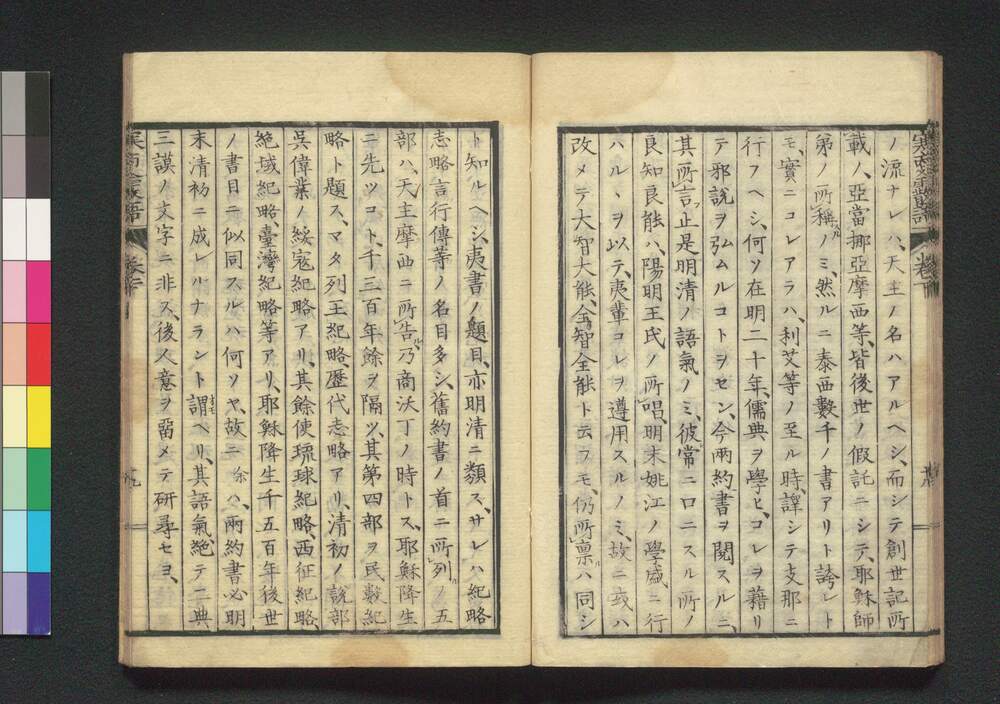 ノ流ナレハ、天主ノ名ハアルヘシ、而シテ創世記所
載ノ、亞當挪亞摩西等、皆後世ノ假託ニシテ、耶穌師
弟ノ所稱スルノミ、然ルニ泰西數千ノ書アリト誇レト
モ、實ニコレアラハ、利艾等ノ至ル時、譯シテ支那ニ
行フヘシ、何ソ在明二十年、儒典ヲ學ヒ、コレヲ藉リ
テ邪説ヲ弘ムルコトヲセン、今兩約書ヲ閲スルニ、
其所言フ止是明清ノ語氣ノミ、彼常ニ口ニスル所ノ
良知良能ハ、陽明王氏ノ所唱、明末姚江ノ學盛ニ行
ハルヽヲ以テ、夷輩コレヲ遵用スルノミ、故ニ或ハ
改メテ大智大能、全智全能ト云フモ、仍所禀ルハ同シ
ト知ルヘシ、夷書ノ題目、亦明清ニ類ス、サレハ紀略
志略言行傳等ノ名目多シ、舊約書ノ首ニ所列ルノ五
部ハ、天主摩西ニ所告ル乃商沃丁ノ時トス、耶穌降生
ニ先ツコト、千三百年餘ヲ隔ツ、其第四部ヲ民數紀
略ト題ス、マタ列王紀略歷代志略アリ、清初ノ説部
呉偉業ノ綏寇紀略アリ、其餘使琉球紀略、西征紀略、
絶域紀略、臺灣紀略等アリ、耶穌降生千五百年後世
ノ書目ニ似同スルハ何ソヤ、故ニ余ハ、兩約書必明
末清初ニ成レルナラント謂ヘリ、其語氣、絶テ二典
三謨ノ文字ニ非ス、後人意ヲ留メテ研尋セヨ、